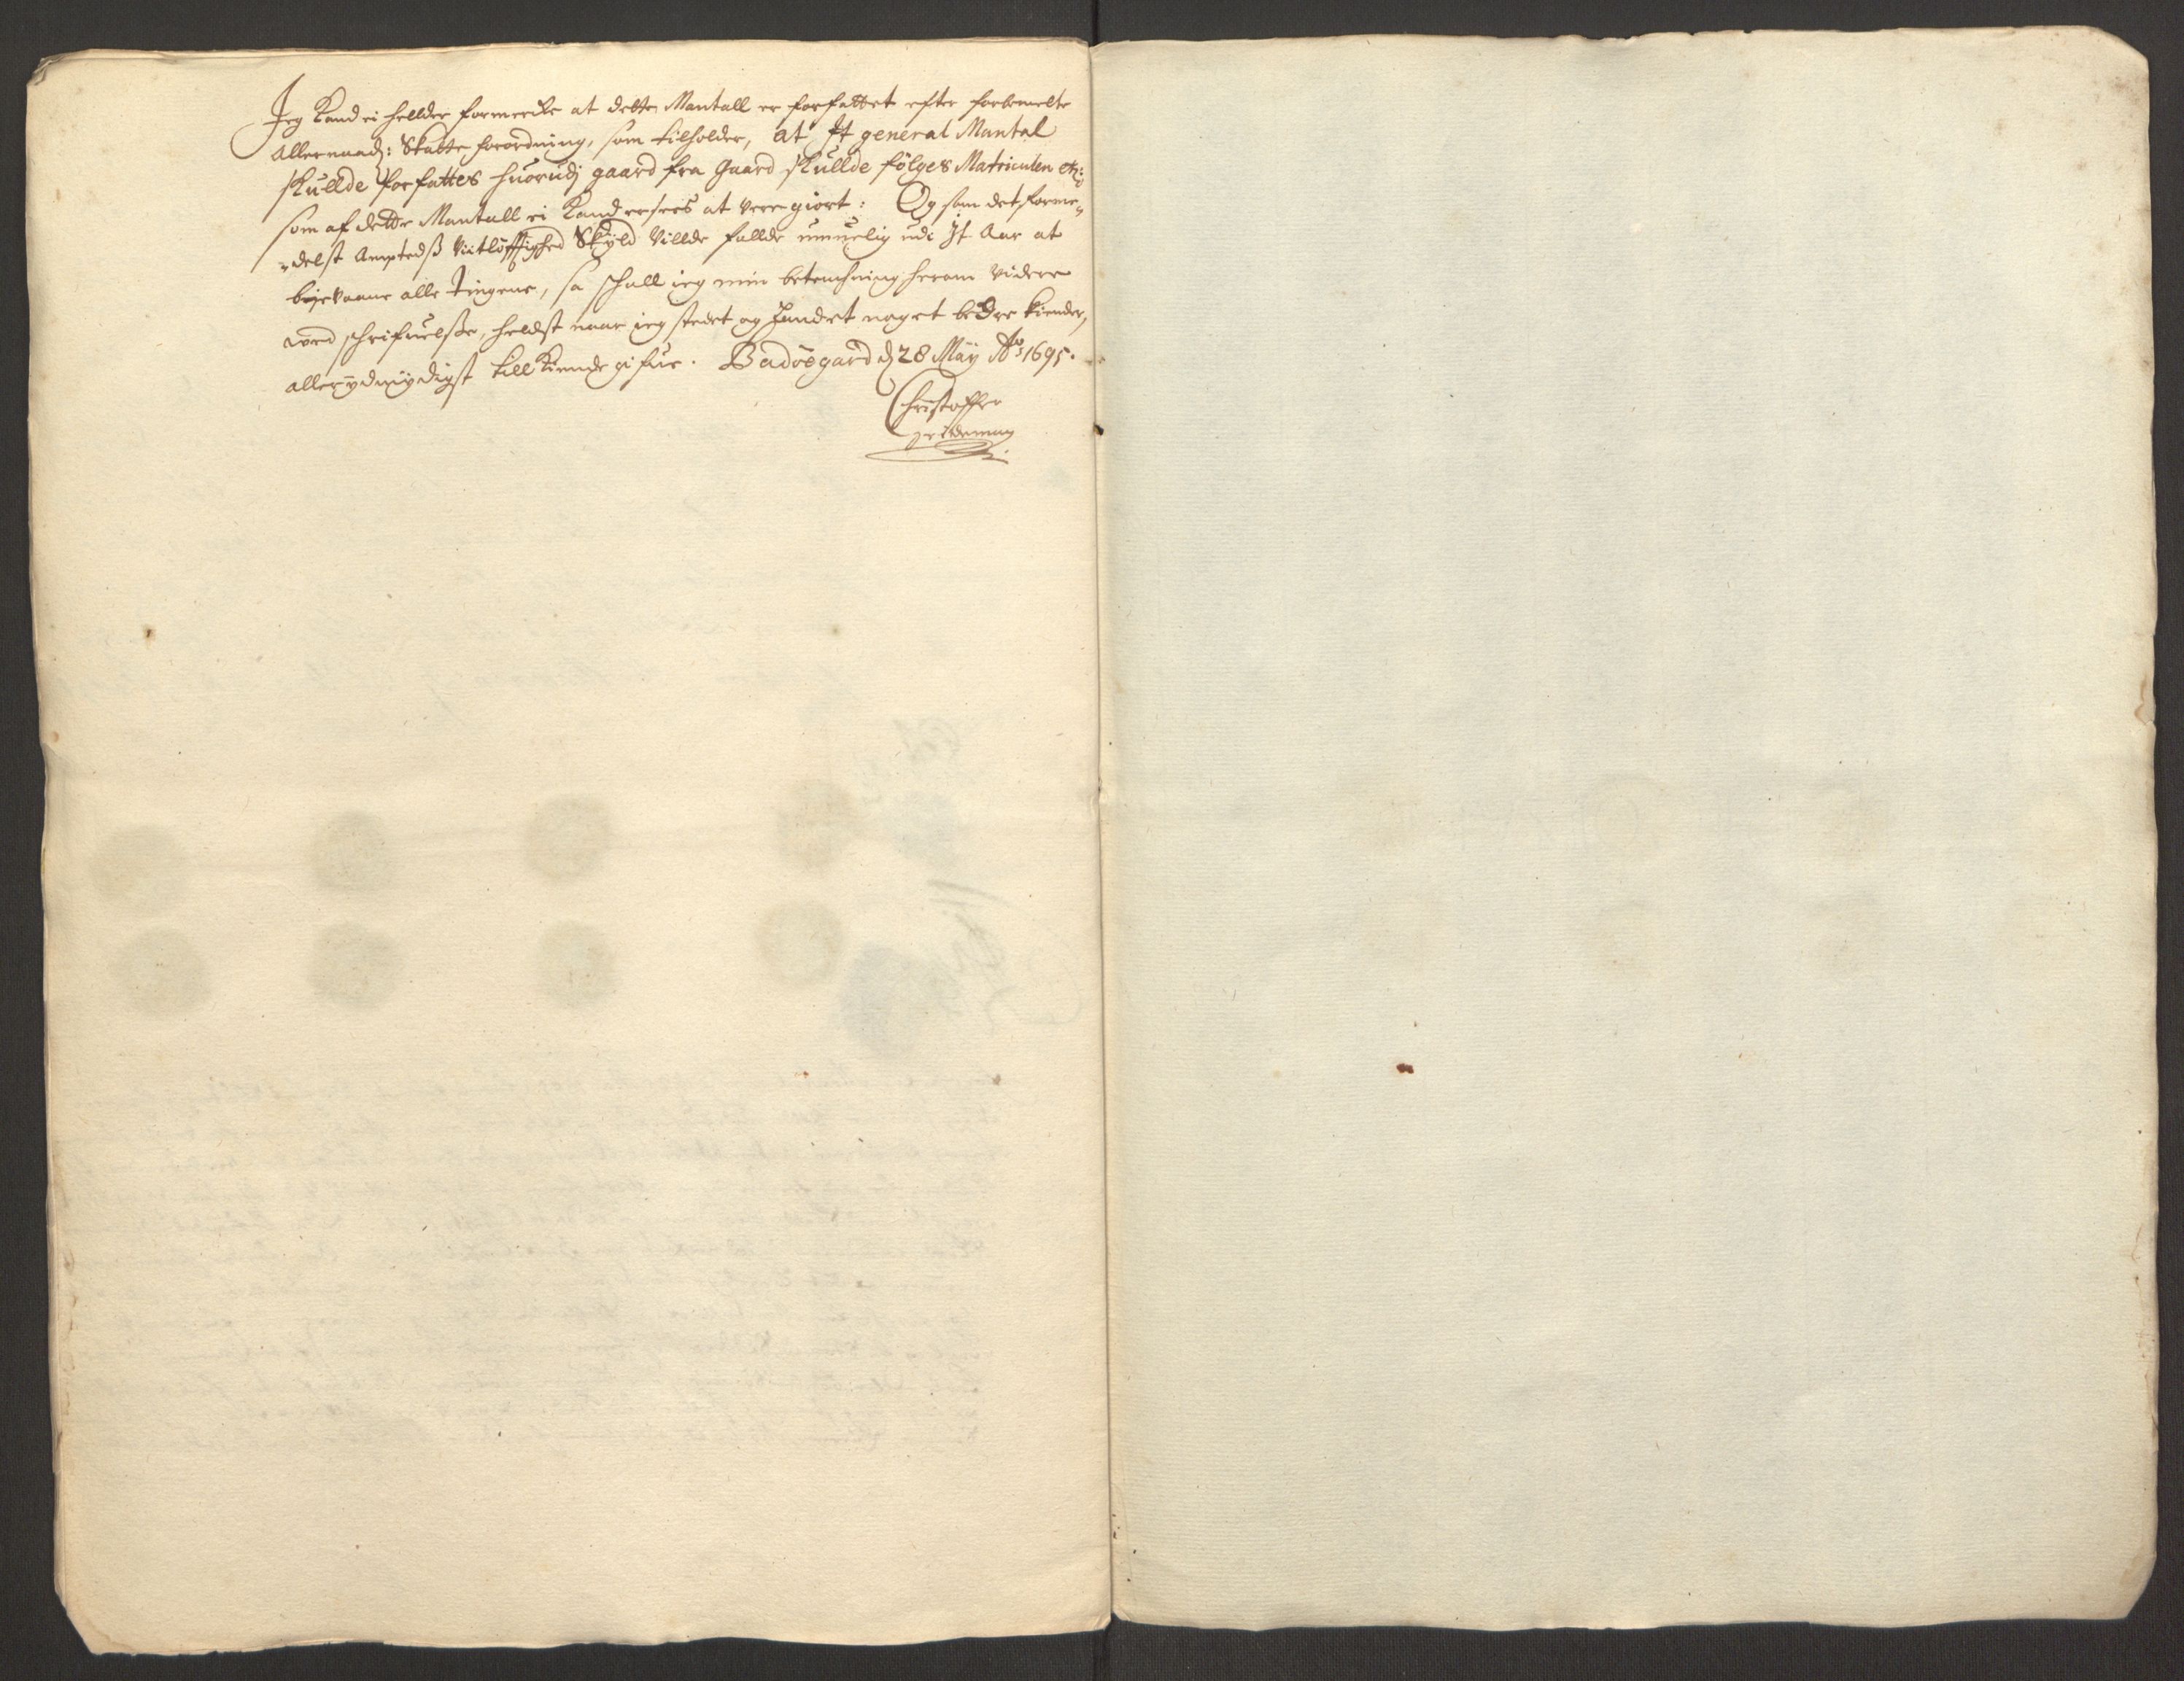 Jeg Kand ei helder formercke at dette Mantall er forfattet efter forbemelte
Allernaad: Skatte forordning, som tilholder, at Jt general Mantal
skullde forfattes huorudj gaard fra Gaard skullde fölges Matriculen etz:
som af dette Mantall ei Kand ersees at vere giort: Og som det forme-
delst Amptedß Vitlöfftighed Skyld Villde fallde umuelig udi Jt Aar at
bejvaane alle Tingene, sa schall ieg min betenchning herom Videre
ved schrifuelße, heldst naar ieg stedet og Landet noget bedre kiender,
allerydmydigst till Kiende gifue. Badöegaard d 28 Maÿ Ao 1695.
Christoffer